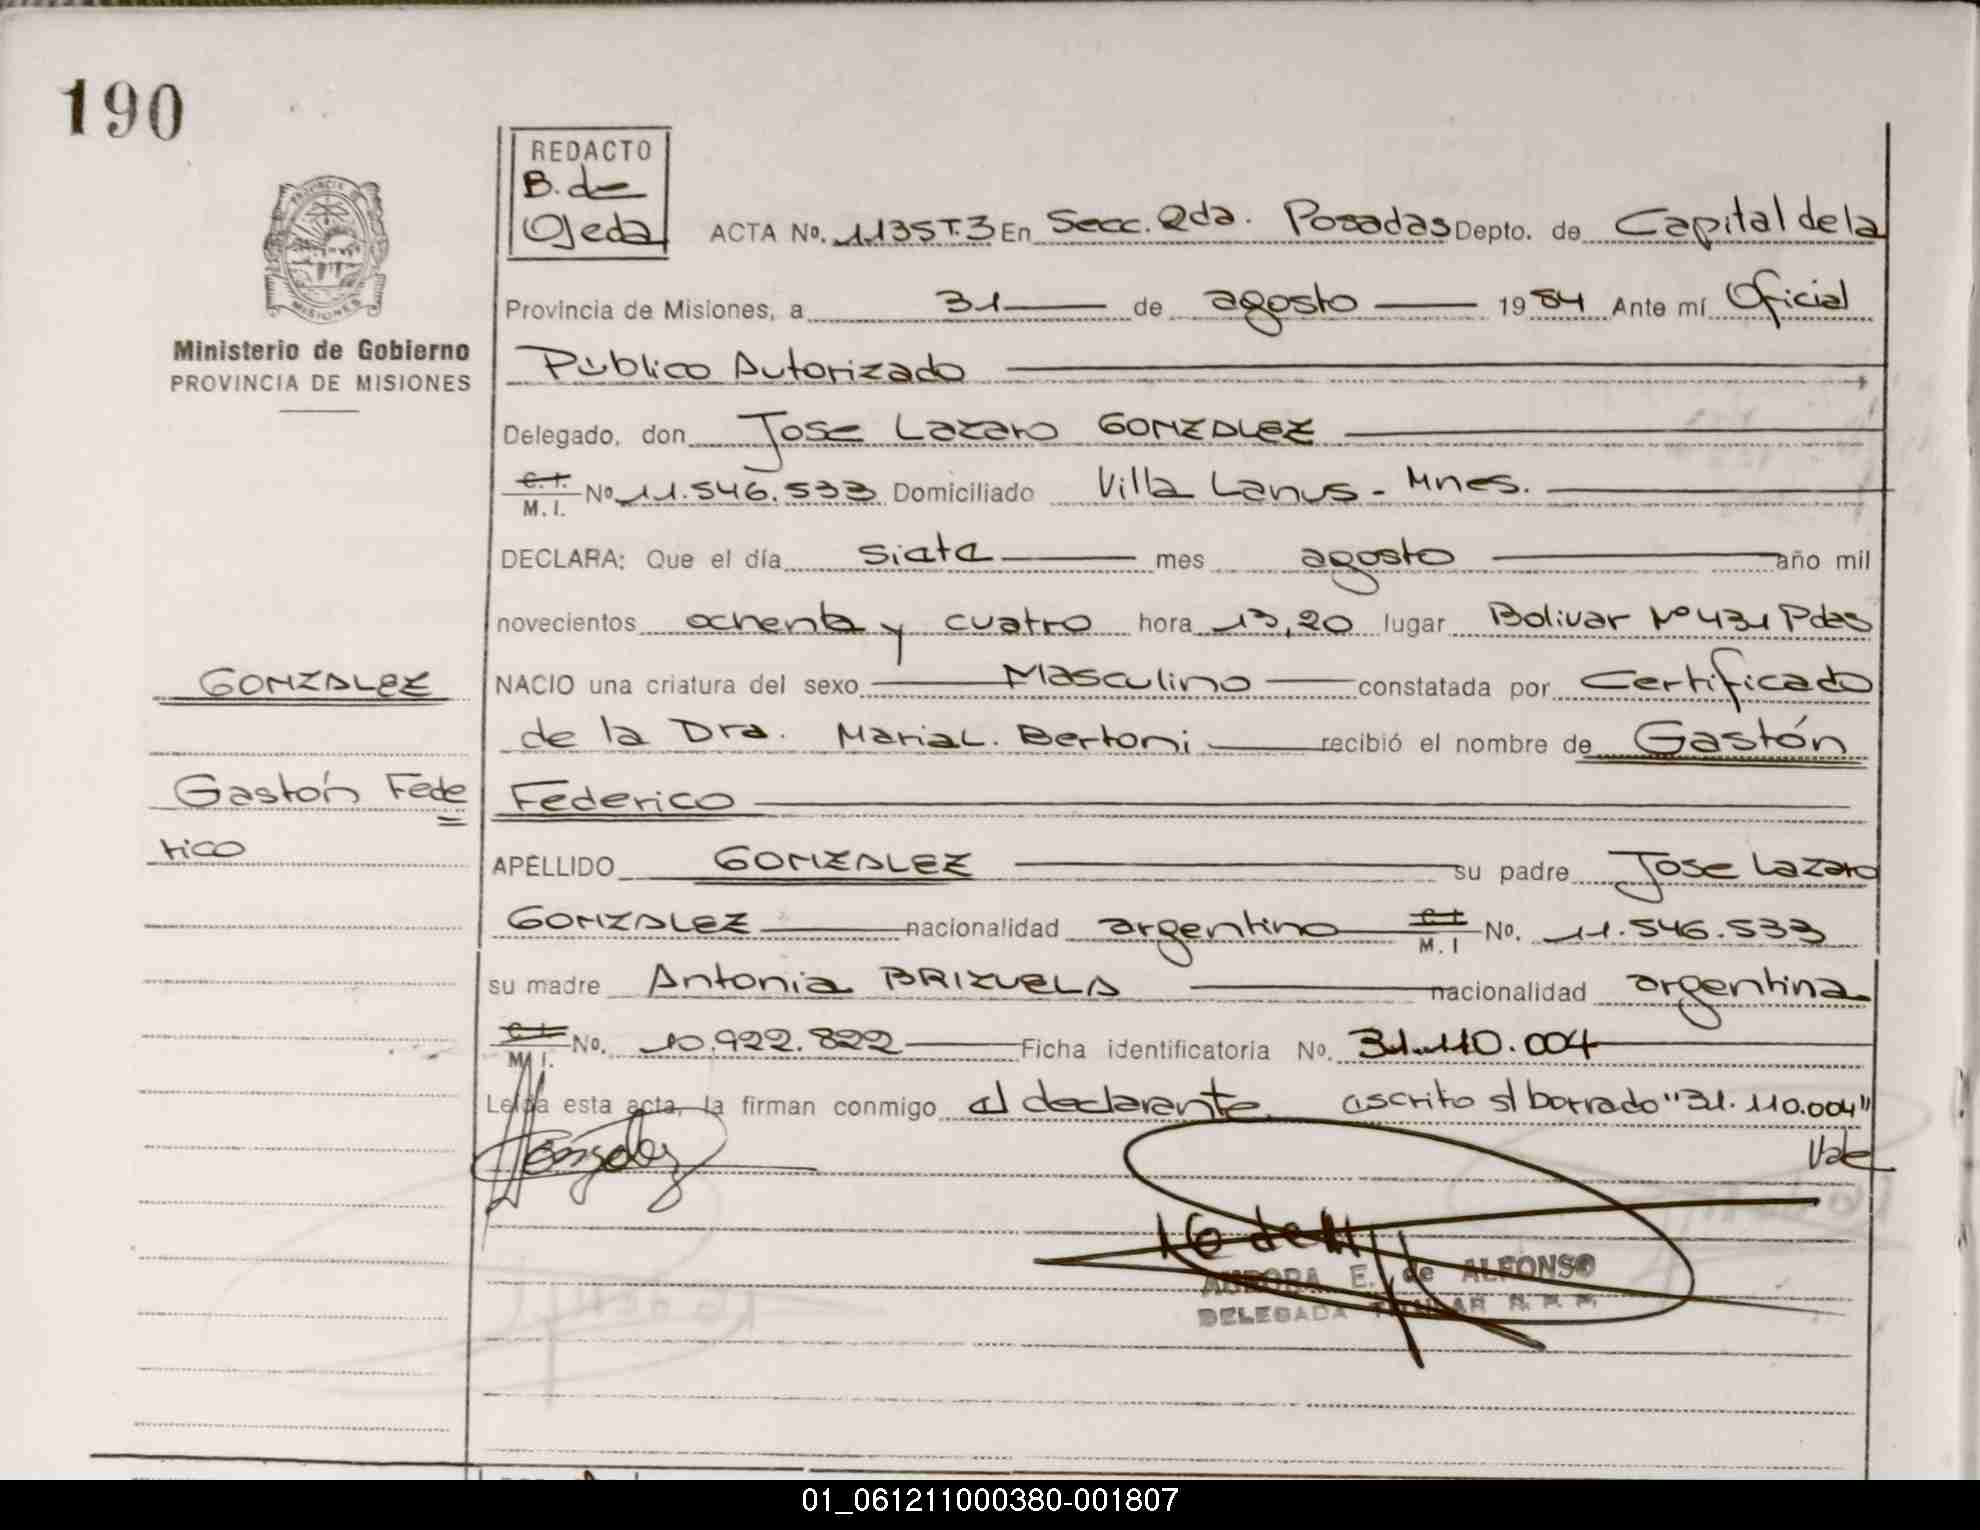 190
REDACTO
B. de
Ojeda
ACTA Nº. 1135T.3 En Secc. 2da. Posadas Depto. de Capital de la
PROVINCIA DE
MISIONES
Ministerio de Gobierno
PROVINCIA DE MISIONES
Provincia de Misiones, a 31 de agosto 1984 Ante mí Oficial
Público Autorizado
Delegado, don Jose Lazaro GONZALEZ
C. I.
M. I. Nº 11.546.533 Domiciliado Villa Lanus - Mnes.
DECLARA: Que el día siete mes agosto año mil
novecientos ochenta y cuatro hora 13,20 lugar Bolivar Nº 431 Pdas
GONZALEZ
NACIO una criatura del sexo Masculino constatada por Certificado
de la Dra. Maria L. Bertoni recibió el nombre de Gastón
Gastón Fede
rico
Federico
APELLIDO GONZALEZ su padre Jose Lazaro
GONZALEZ nacionalidad argentino C. I.
M. I No. 11.546.533
su madre Antonia BRIZUELA nacionalidad argentina
C. I.
M. I. No. 10.922.822 Ficha identificatoria No. 31.110.004
Leída esta acta, la firman conmigo el declarante. escrito s/ borrado "31.110.004"
Vale
Gonzalez
AURORA E. de ALFONSO
DELEGADA TITULAR R. P. P.
01_061211000380-001807